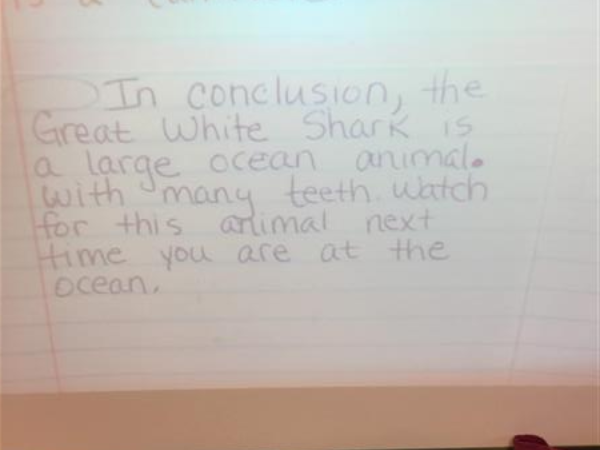 In conclusion, the
Great White Shark is
a large ocean animal.
with many teeth. Watch
for this animal next
time you are at the
ocean.